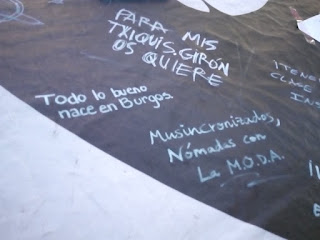 PARA MIS
TXIQUIS, GIRÓN
OS QUIERE
Todo lo bueno
nace en Burgos.
Musincronizados,
Nómadas con
La M.O.D.A.
¡TENE
CLASE
INS